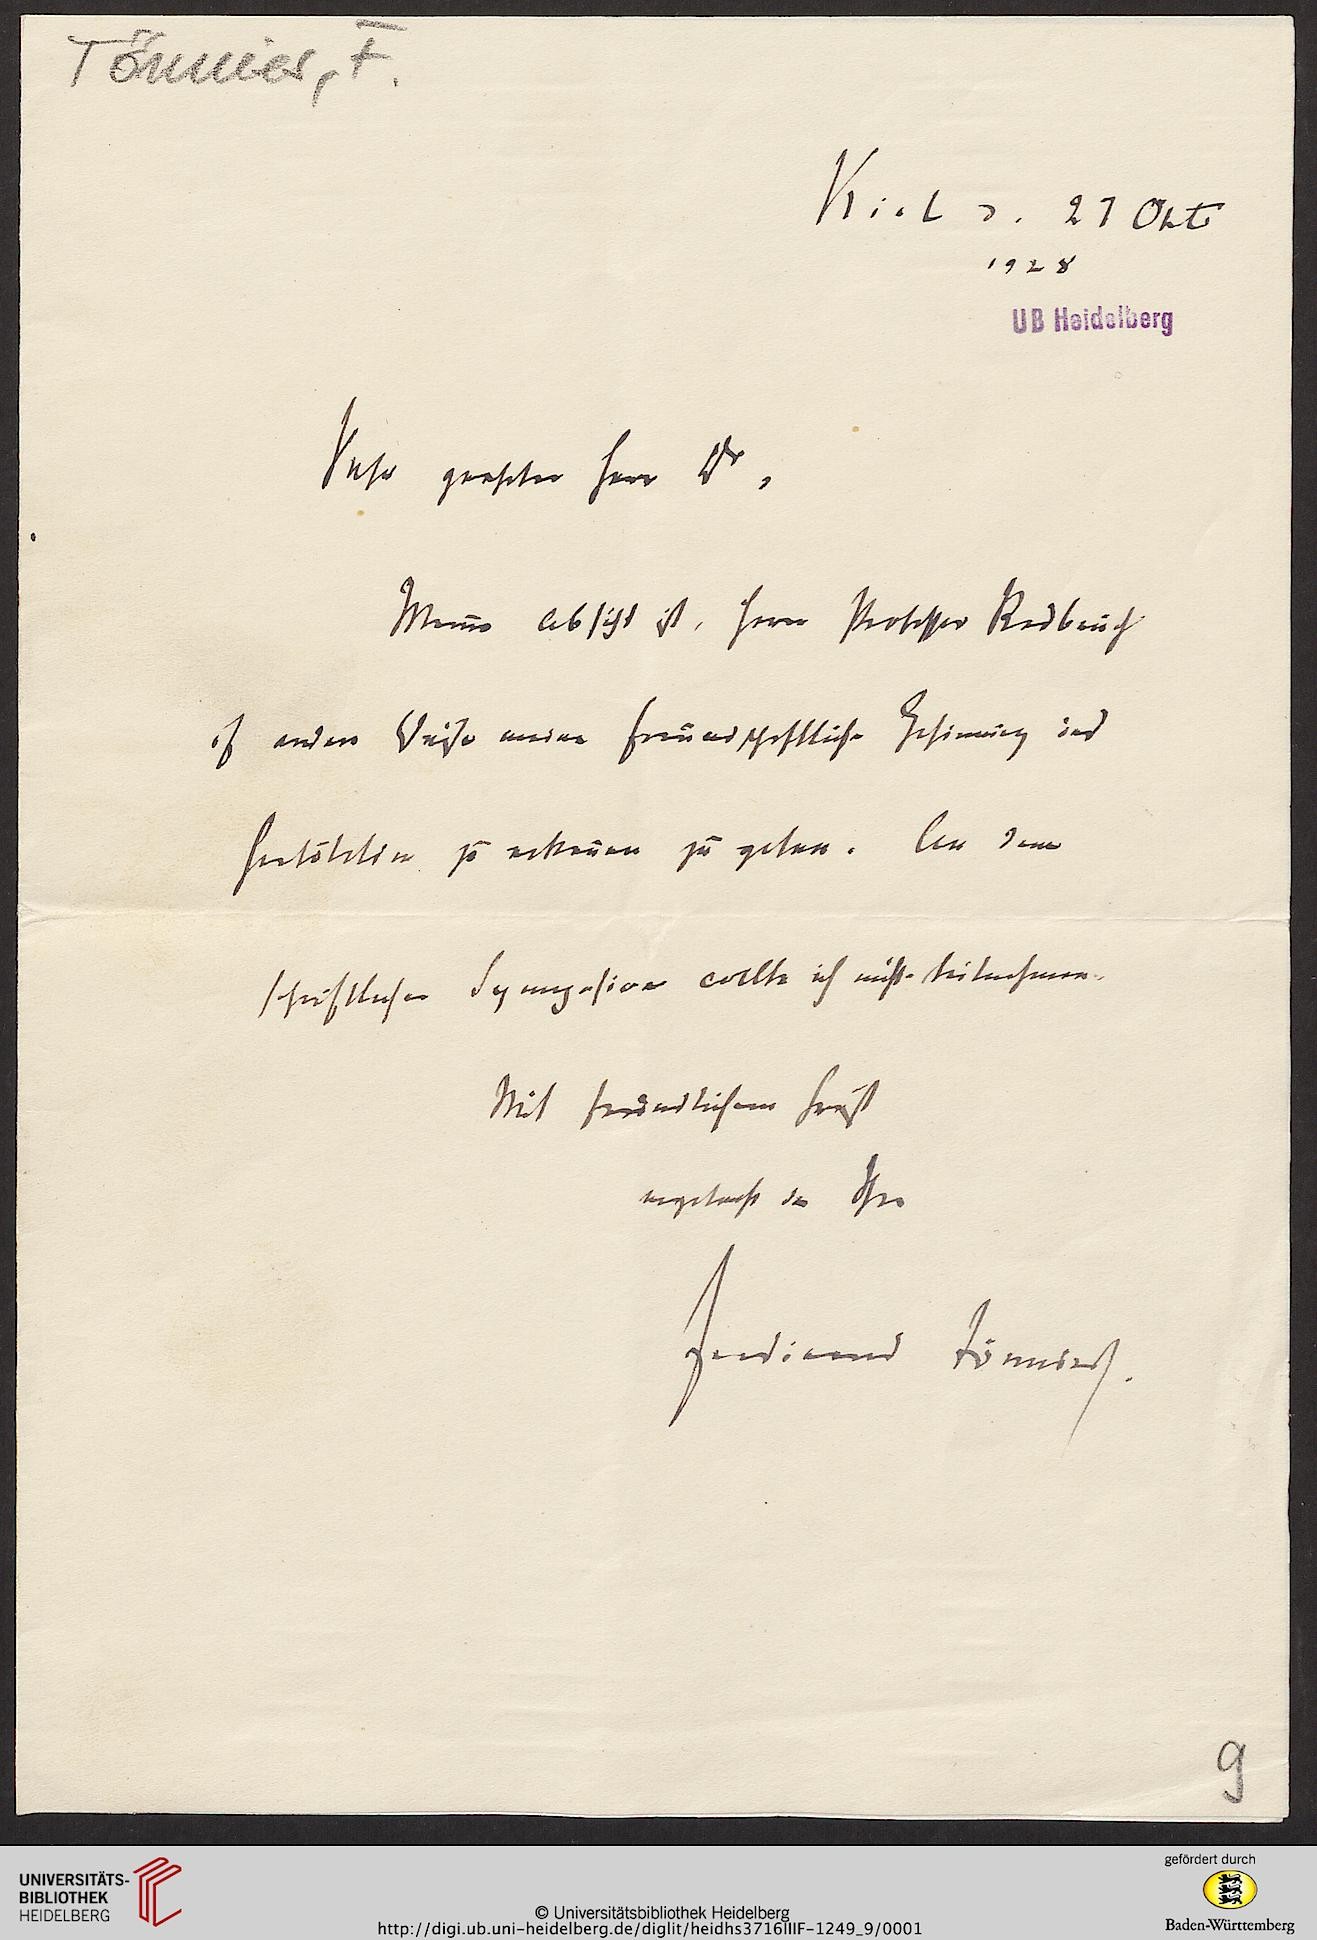 Tönnies, F.
Kiel d. 27 Okt
1928
UB Heidelberg
Sehr geehrter Herr Dr,
Meine Absicht ist, Herrn Professor Radbruch
auf andere Weise meine freundschaftliche Gesinnung und
Gratulation zu erkennen zu geben. An dem
schriftlichen Symposion wollte ich nicht teilnehmen.
Mit freundlichem Gruß
ergebenst der Ihre
Ferdinand Tönnies.
9
UNIVERSITÄTS-
BIBLIOTHEK
HEIDELBERG
© Universitätsbibliothek Heidelberg
http://digi.ub.uni-heidelberg.de/diglit/heidhs3716IIIF-1249_9/0001
gefördert durch
Baden-Württemberg